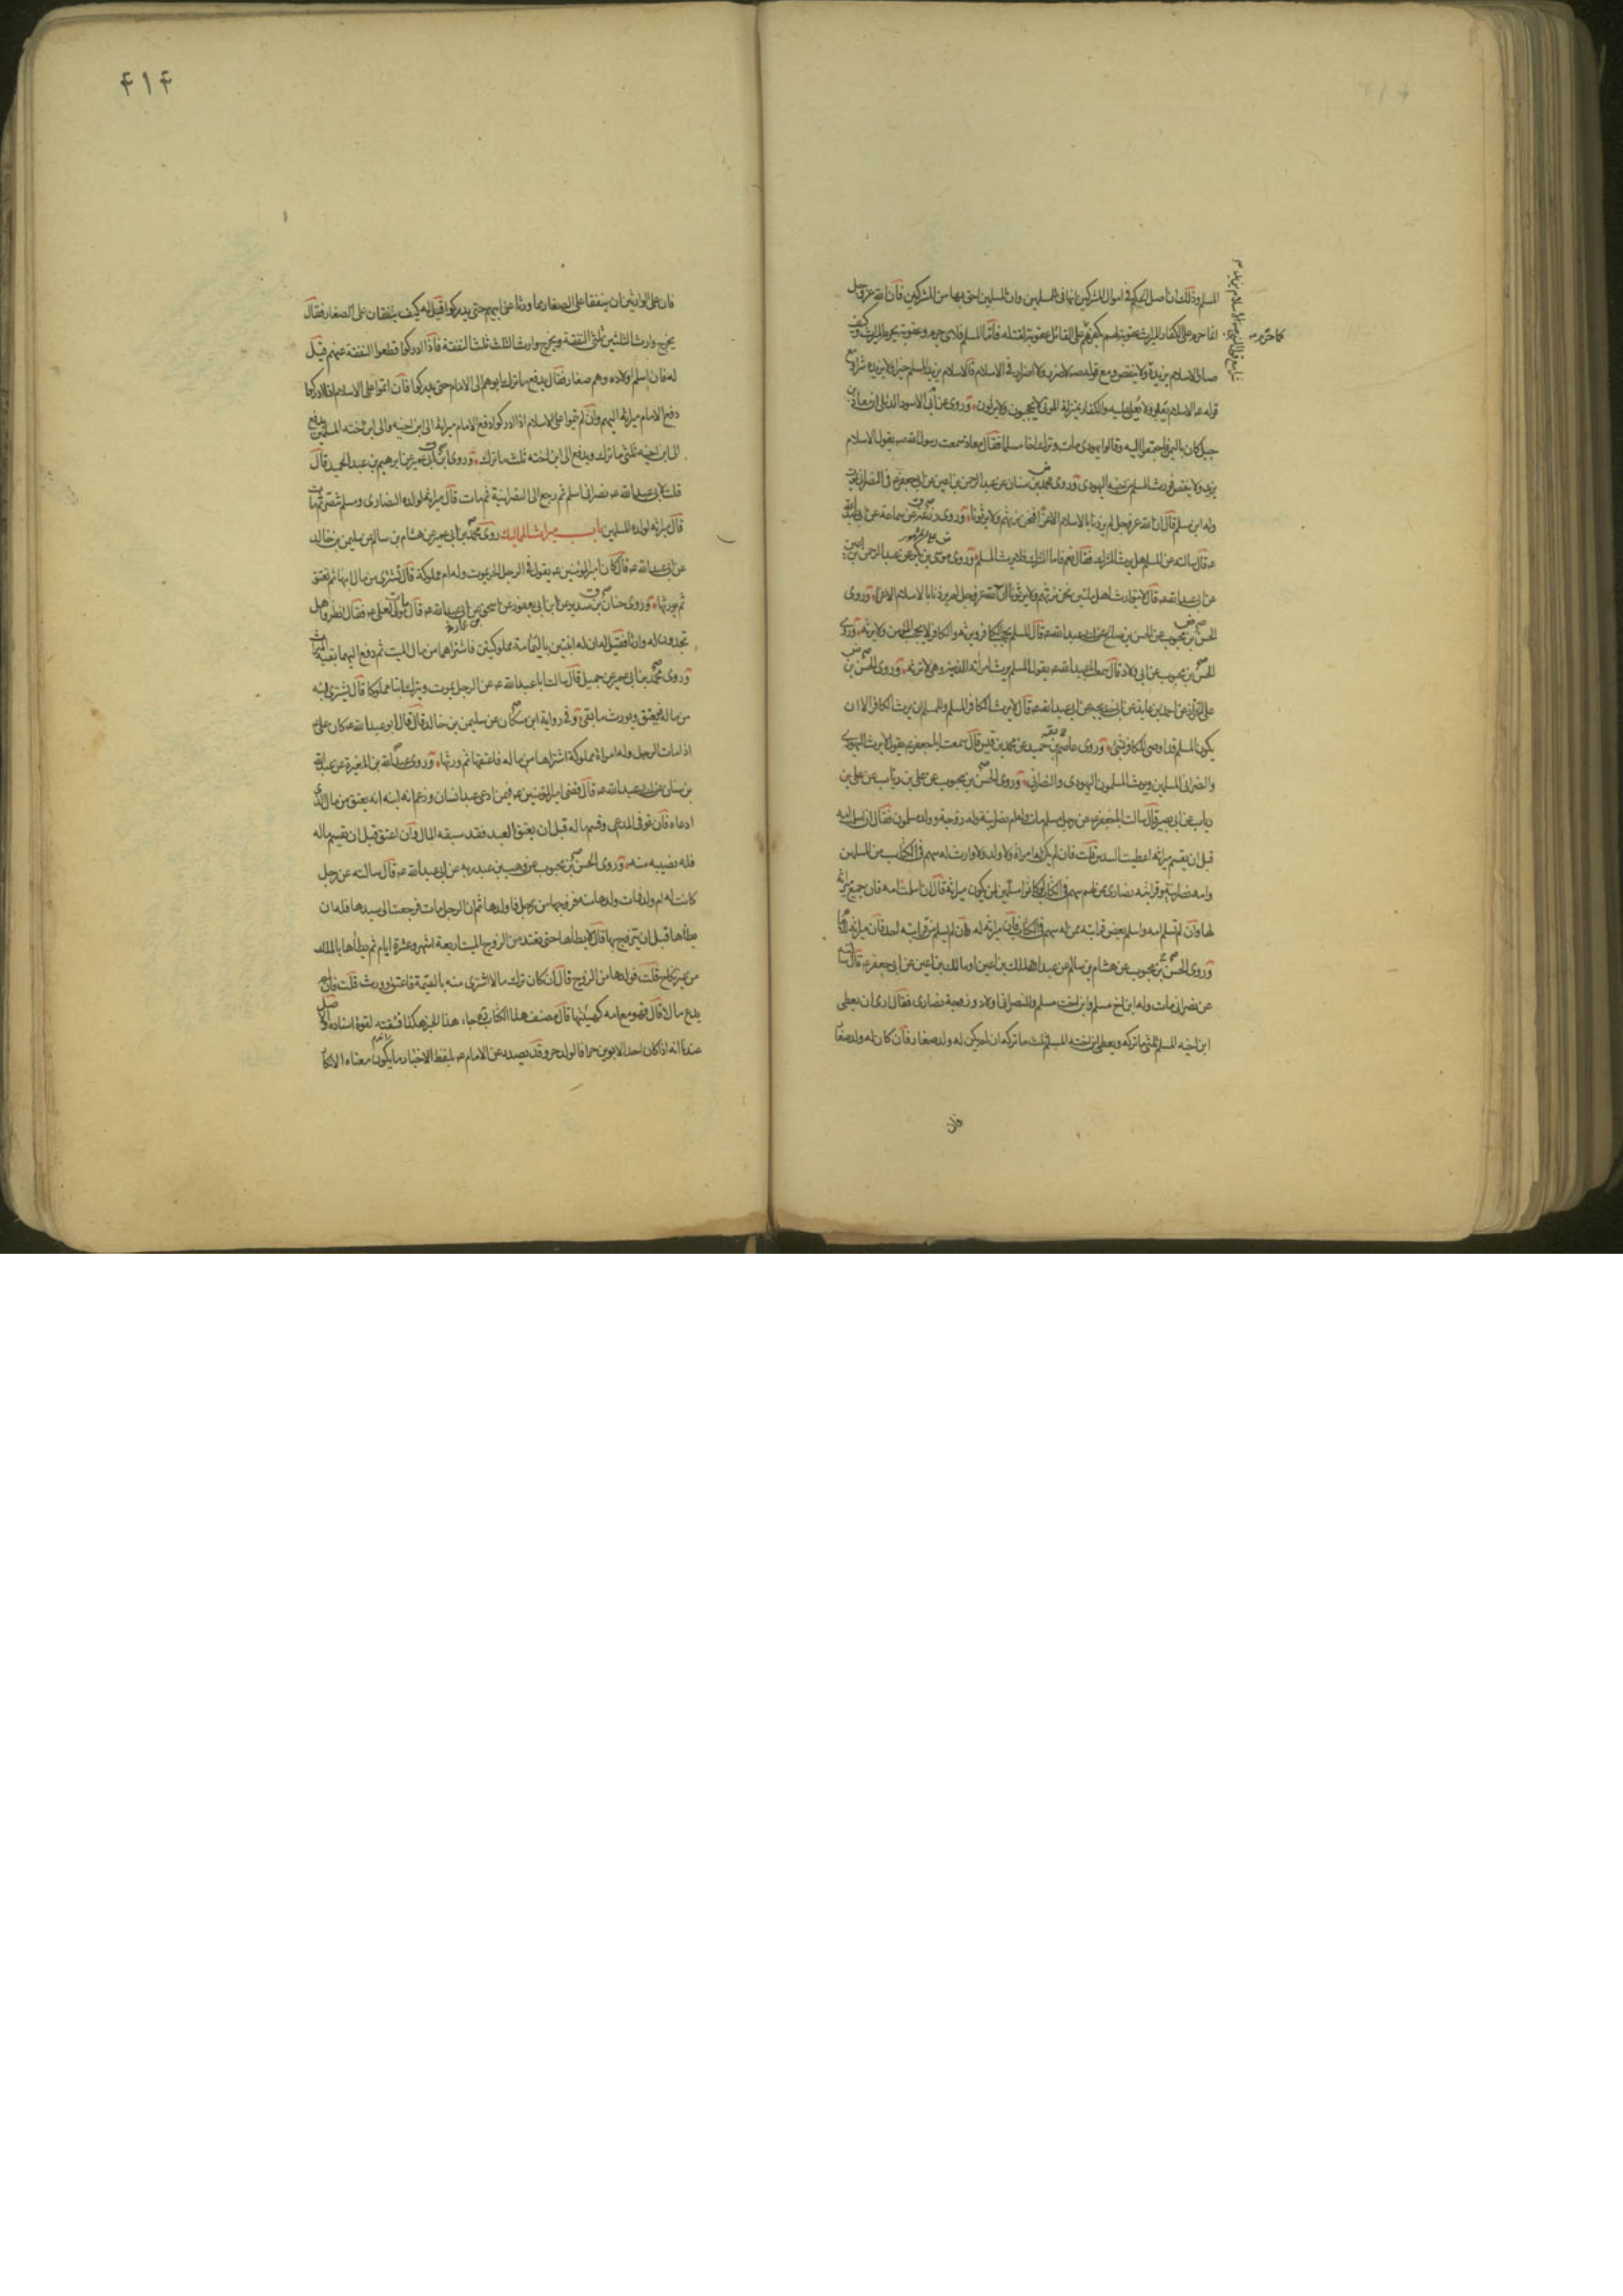 المسلم وذلك ان اصل الحكم في اموال المشركين انها فئ للمسلمين وان المسلمين احق بها من المشركين فان الله عز وجل
انما حرم على الكفار الميراث عقوبة لهم بكفرهم على القاتل عقوبة لقتله فاما المسلم فلاي جرم وعقوبة يحرم الميراث وكيف
كما حرم
صار الاسلام يزيده ولا ينقص ومع قوله ص لا ضرر ولا اضرار في الاسلام فالاسلام يزيد المسلم خيرا ولا يزيده شرا ومع
قوله عم الاسلام يعلو ولا يعلى عليه والكفار بمنزلة الموتى لا يحجبون ولا يرثون وروى عن ابي الاسود الدئلي ان معاذ بن
جبل كان باليمن فاجتمعوا اليه وقالوا يهودي مات وترك اخا مسلما فقال معاذ سمعت رسول الله ص يقول الاسلام
يزيد ولا ينقص فورث المسلم من اخيه اليهودي وروى محمد بن سنان عن عبد الرحمن بن اعين عن ابي جعفر ع في النصراني يموت
وله ابن مسلم قال ان الله عز وجل لم يزدنا بالاسلام الا عزا فنحن نرثهم ولا يرثونا وروى زرعة عن سماعة عن ابي عبد الله
عم قال سالته عن المسلم هل يرث المشرك فقال نعم فاما المشرك فلا يرث المسلم وروى موسى بن بكر عن عبد الرحمن بن اعين
عن ابي عبد الله عم قال لا يتوارث اهل ملتين نحن نرثهم ولا يرثونا ان الله عز وجل لم يزدنا بالاسلام الا عزا وروى
الحسن بن محبوب عن الحسن بن صالح عن ابي عبد الله عم قال المسلم يحجب الكافر ويرثه والكافر لا يحجب المؤمن ولا يرثه وروى
الحسن بن محبوب عن ابي ولاد قال سمعت ابا عبد الله عم يقول المسلم يرث امراته الذمية وهي لا ترثه وروى الحسن بن
علي الخزاز عن احمد بن عايذ عن ابي خديجة عن ابي عبد الله عم قال لا يرث الكافر المسلم وللمسلم ان يرث الكافر الا ان
يكون المسلم قد اوصى للكافر بشئ وروى عاصم بن حميد عن محمد بن قيس قال سمعت ابا جعفر ع يقول لا يرث اليهودي
والنصراني المسلمين ويرث المسلمون اليهودي والنصراني وروى الحسن بن محبوب عن علي بن رئاب عن علي بن
رباب عن ابي بصير قال سالت ابا جعفر ع عن رجل مسلم مات وله ام نصرانية وله زوجة وولد مسلمون فقال ان اسلمت امه
قبل ان يقسم ميراثه اعطيت السدس قلت فان لم يكن له امراة ولا ولد ولا وارث له سهم في الكتاب من المسلمين
وامه نصرانية وله قرابة نصارى ممن لهم سهم في الكتاب لو كانوا مسلمين لمن يكون ميراثه قال ان اسلمت امه فان جميع ميراثه
لها وان لم تسلم امه واسلم بعض قرابته ممن له سهم في الكتاب فان ميراثه له وان لم يسلم من قرابته احد فان ميراثه للامام
وروى الحسن بن محبوب عن هشام بن سالم عن عبد الملك بن اعين او مالك بن اعين عن ابي جعفر ع قال سالته
عن نصراني مات وله ابن اخ مسلم وابن اخت مسلم وللنصراني اولاد وزوجة نصارى فقال ارى ان يعطى
ابن اخيه المسلم ثلثي ما تركه ويعطى ابن اخته المسلم ثلث ما تركه ان لم يكن له ولد صغار فان كان له ولد صغار
فان
۴۱۴
فان على الوارثين ان ينفقا على الصغار مما ورثا عن ابيهم حتى يدركوا قيل له كيف ينفقان على الصغار فقال
يخرج وارث الثلثين ثلثي النفقة ويخرج وارث الثلث ثلث النفقة فاذا ادركوا قطعوا النفقة عنهم قيل
له فان اسلم اولاده وهم صغار فقال يدفع ما ترك ابوهم الى الامام حتى يدركوا فان اتموا على الاسلام اذا ادركوا
دفع الامام ميراثه اليهم وان لم يتموا على الاسلام اذا ادركوا دفع الامام ميراثه الى ابن اخيه والى ابن اخته المسلمين يدفع
الى ابن اخيه ثلثي ما ترك ويدفع الى ابن اخته ثلث ما ترك وروى ابن ابي عمير عن ابرهيم بن عبد الحميد قال
قلت لابي عبد الله عم نصراني اسلم ثم رجع الى النصرانية ثم مات قال ميراثه لولده النصارى ومسلم تنصر ثم مات
قال ميراثه لولده المسلمين باب ميراث المماليك روى محمد بن ابي عمير عن هشام بن سالم عن سليمن بن خالد
عن ابي عبد الله عم قال كان امير المؤمنين عم يقول في الرجل الحر يموت وله ام مملوكة قال تشترى من مال ابنها ثم تعتق
ثم يورثها وروى حنان بن سدير عن ابن ابي يعفور عن اسحق بن عمار عن ابي عبد الله عم قال مات مولى لعلي عم فقال انظروا هل
تجدون له وارثا فقيل له ان له ابنتين باليمامة مملوكتين فاشتراهما من مال الميت ثم دفع اليهما بقية المال
وروى محمد بن ابي عمير عن جميل قال سالت ابا عبد الله عم عن الرجل يموت ويترك ابنا مملوكا قال يشترى ابنه
من ماله فيعتق ويورث ما بقي وفي رواية ابن مسكان عن سليمن بن خالد قال قال ابو عبد الله عم كان علي ع
اذا مات الرجل وله امراة مملوكة اشتراها من ماله فاعتقها ثم ورثها وروى عبد الله بن المغيرة عن عبد الله
بن سنان عن ابي عبد الله عم قال قضى امير المؤمنين عم فيمن ادعى عبد انسان وزعم انه ابنه انه يعتق من مال الذي
ادعاه فان توفي المدعي وقسم ماله قبل ان يعتق العبد فقد سبقه المال وان اعتق قبل ان يقسم ماله
فله نصيبه منه وروى الحسن بن محبوب عن وهب بن عبد ربه عن ابي عبد الله عم قال سالته عن رجل
كانت له ام ولد فمات ولدها منه فزوجها من رجل فاولدها ثم ان الرجل مات فرجعت الى سيدها فله ان
يطاها قبل ان يتزوج بها قال لا يطاها حتى تعتد من الزوج الميت اربعة اشهر وعشرة ايام ثم يطاها بالملك
من غير نكاح قلت فولدها من الزوج قال ان كان ترك مالا اشترى منه بالقيمة فاعتق وورث قلت فان لم
يدع مالا قال فهو مع امه كهيئتها قال مصنف هذا الكتاب رح جاء هذا الخبر هكذا فسقته لقوة اسناده والاصل
عندنا انه اذا كان احد الابوين حرا فالولد حر وقد يصدر عن الامام عم بلفظ الاخبار ما يكون معناه الانكار